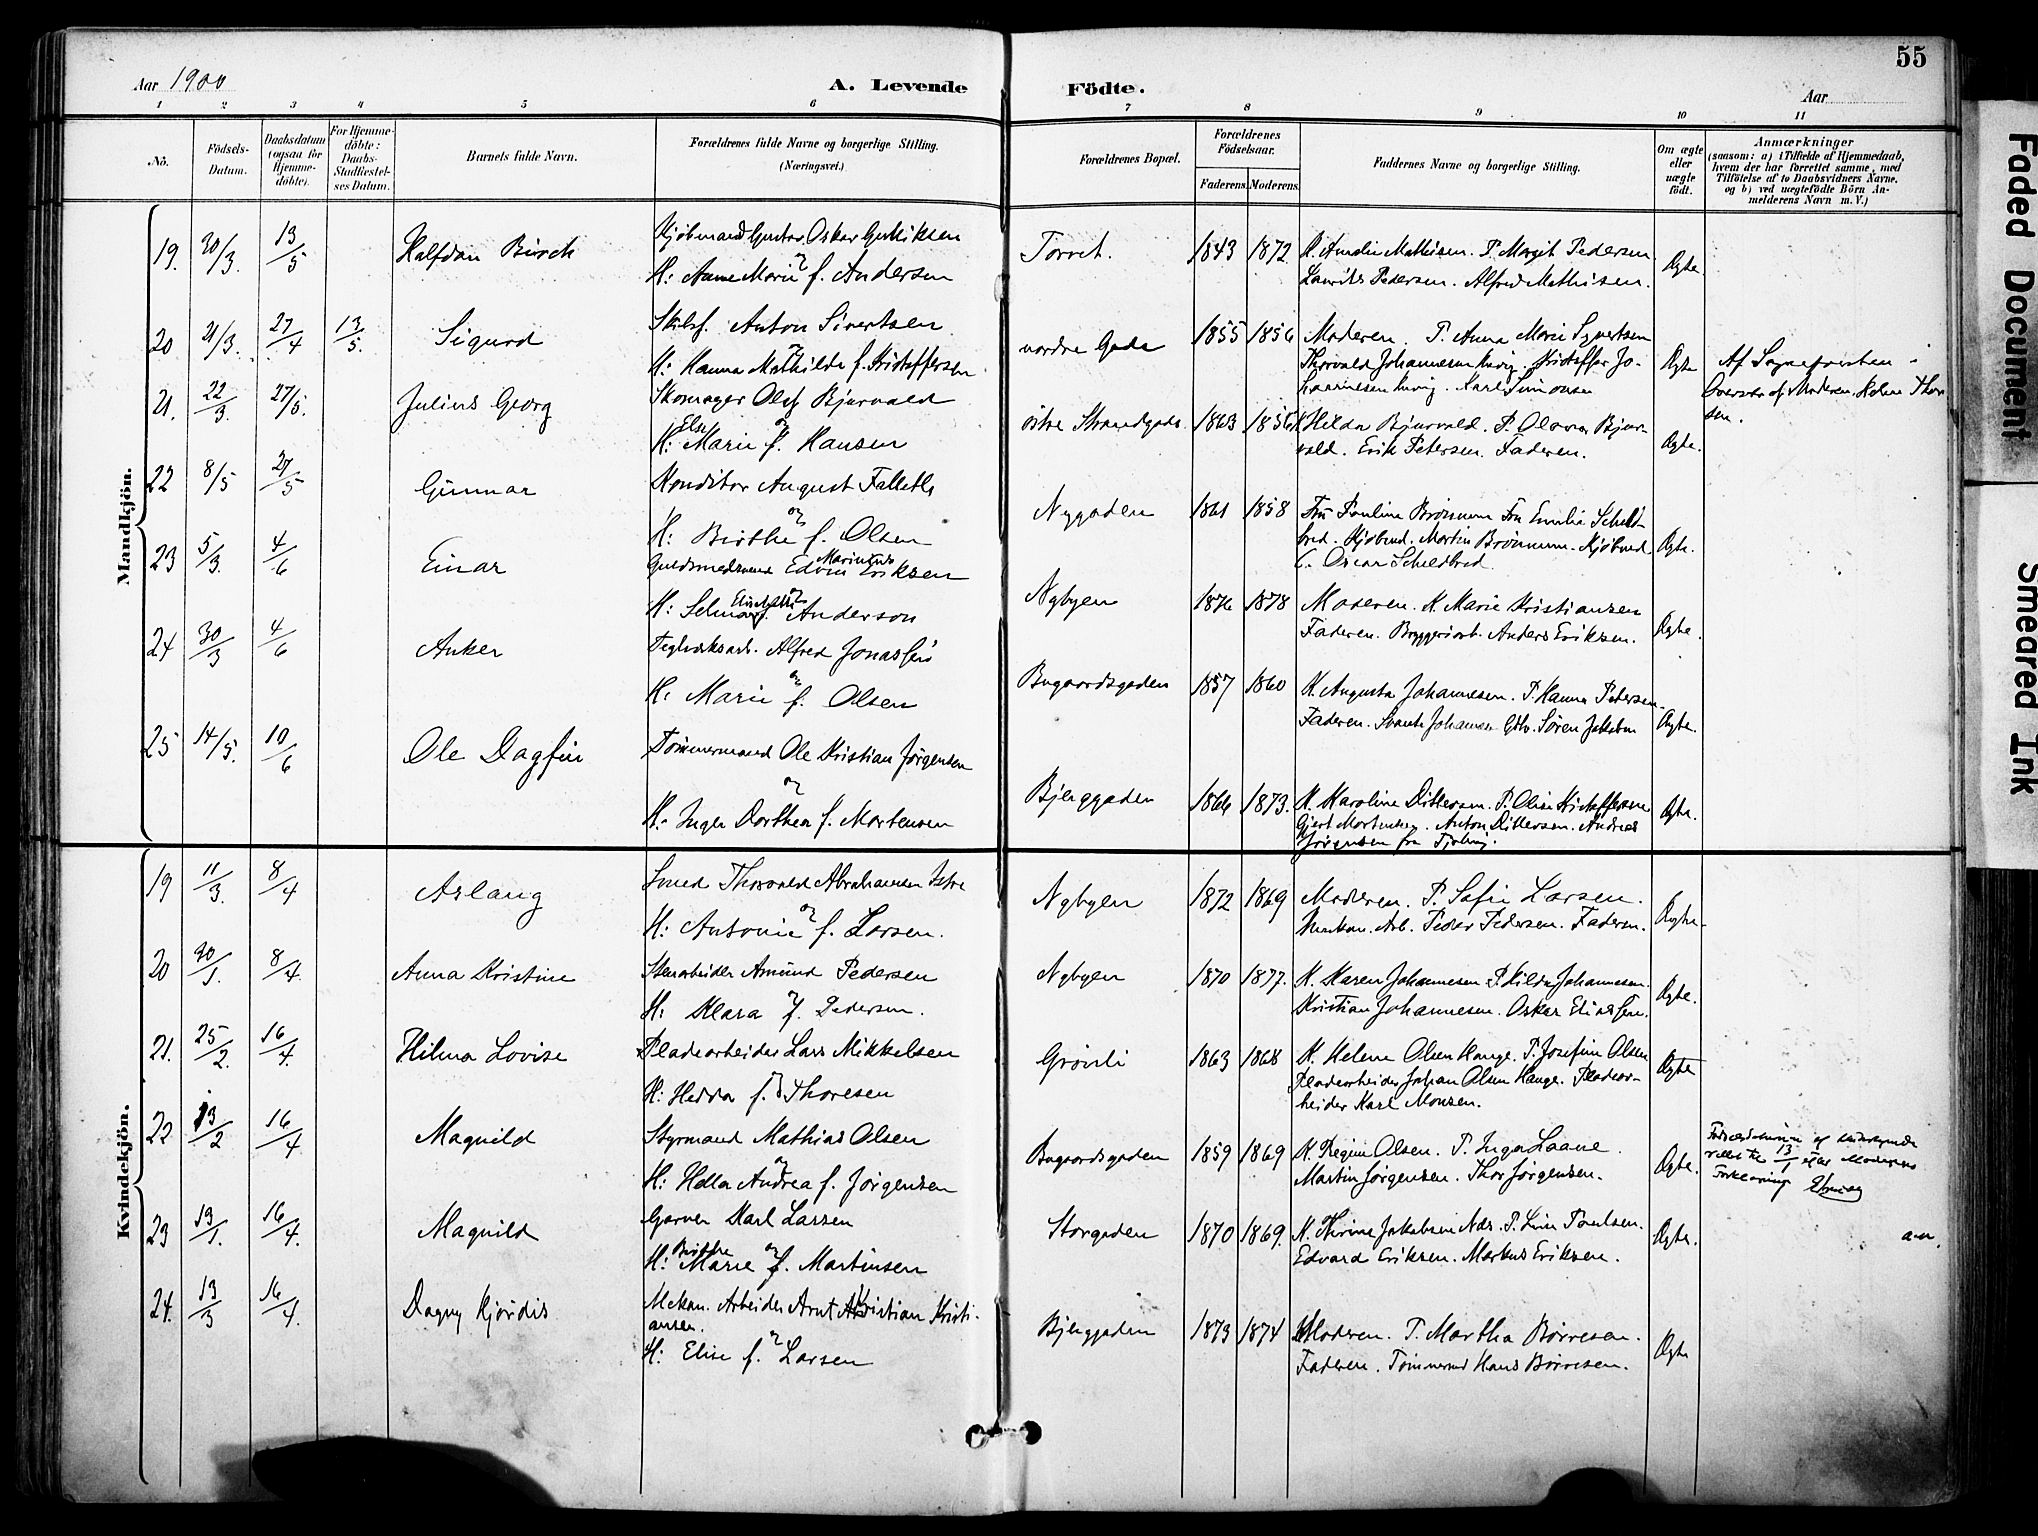 55
Aar 1900
A. Levende
Födte.
Aar
1 2 3 4 5 6 7 8 9 10 11
No.
Födsels-
Datum.
Daabsdatum
(ogsaa för
Hjemme-
döbte).
For Hjemme-
döbte:
Daabs-
Stadfæstel-
ses Datum.
Barnets fulde Navn.
Forældrenes fulde Navne og borgerlige Stilling.
(Næringsvei.)
Forældrenes Bopæl.
Forældrenes
Födselsaar.
Faderens. Moderens.
Faddernes Navne og borgerlige Stilling.
Om ægte
eller
uægte
födt.
Anmærkninger
(saasom: a) i Tilfælde af Hjemmedaab,
hvem der har forrettet samme, med
Tilföielse af to Daabsvidners Navne,
og b) ved uægtefödte Börn An-
melderens Navn m. V.)
Mandkjön.
19. 30/3. 13/5 Halfdan Birch
Kjöbmand Gustav Oskar
H: Anne Marie f. Andersen
Torvet. 1843 1872
K. Amalie Mathisen. P. Margit Pedersen
Laurits Pedersen. Alfred Mathisen.
Ægte
20 21/3. 27/4 13/5. Sigurd
Anton Sivertsen
H: Hanna Mathilde f. Kristoffersen
nordre Gade 1855 1856
Moderen. P. Anna Marie Syvertsen
Thorvald Johannesen Kristoffer Jo-
hannesen Karl Simonsen
Ægte
Af Sognepresten i
Overvær af Moderen, Helene Thor
sen.
21. 22/3. 27/5. Julius Georg
Skomager Olaf Bjurvald
H: Else Marie f. Hansen
östre Strandgade 1863 1856
Hilda Bjurvald. P. Olava Bjur-
vald. Erik Petersen. Faderen.
Ægte.
22 8/5 27/5 Gunnar
Konditor August Falleth
H: Birthe f. Olsen
Nygaden 1861 1858
Fru Pauline Brönnum Fru Emilie Scheld-
bred. Kjöbmd. Martin Brönnum. Kjöbmd.
C. Oscar Scheldbred.
Ægte.
23 5/3. 4/6 Einar
Guldsmedsvend Edvin Marinius Eriksen
H: Selma Elisabeth f. Anderson
Nybyen 1876 1878
Moderen. K. Marie Kristiansen
Faderen. Bryggeriarb. Anders Eriksen.
Ægte.
24 30/3 4/6 Anker
Teglværksarb. Alfred Jonassen
H: Marie f. Olsen
Bugaardsgaden 1857 1860
K. Augusta Johannesen. P. Hanna Petersen.
Faderen. Johansen Sören Jakobsen
Ægte.
25 14/5. 10/6 Ole Dagfin
Tömmermand Ole Kristian Jörgensen
H: Inger Dorthea f. Mortensen
Bjerggaden 1866 1873.
K. Karoline Ditlevsen. P. Olise Kristoffersen
Gjert Mortensen. Anton Ditlevsen. Andreas
Jörgensen fra Tjölling.
Ægte.
Kvindekjön.
19 11/3. 8/4 Aslaug
Smed Thorvald Abrahamsen
H: Antonie f. Larsen.
Nybyen 1872 1869
Moderen. P. Sofie Larsen.
Mekan. Arb. Peder Pedersen. Faderen.
Ægte.
20 30/1. 8/4. Anna Kristine
Stenarbeider Amund Pedersen
H: Klara f. Pedersen.
Nybyen 1870 1877.
K. Karen Johannesen P. Hilda Johannesen.
Kristian Johannesen. Oskar Eliassen.
Ægte.
21. 25/2. 16/4. Hilma Lovise
Pladearbeider Lars Mikkelsen
H: Hedda f. Thoresen
Grönli 1863 1868
K. Helene Olsen Hauge. P. Josefine Olsen
Pladearbeider Johan Olsen Hauge. Pladear-
beider Karl Monsen.
Ægte
22 13/2 16/4 Magnild
Styrmand Mathias Olsen
H: Hella Andrea f. Jörgensen
Bugaardsgaden 1859 1869
K. Regine Olsen. P. Inga Laane.
Martin Jörgensen. Thor Jörgensen.
Ægte.
Födselsdatum af undertegnede
rettet til 13/1 efter Moderens
Forklaring
23 13/1. 16/4. Magnild
Garver Karl Larsen
H: Birthe Marie f. Martinsen
Storgaden 1870 1869.
K. Thrine Jakobsen Næs. P. Lina Poulsen.
Edvard Eriksen. Markus Eriksen.
Ægte.
24. 13/3 16/4. Dagny Hjördis
Mekan. Arbeider Arnt Kristian Kristi-
ansen.
H: Elise f. Larsen
Bjerggaden 1873 1874
Moderen. P. Martha Börresen.
Faderen. Tömmermd Hans Börresen.
Ægte
Faded Document
Smeared Ink